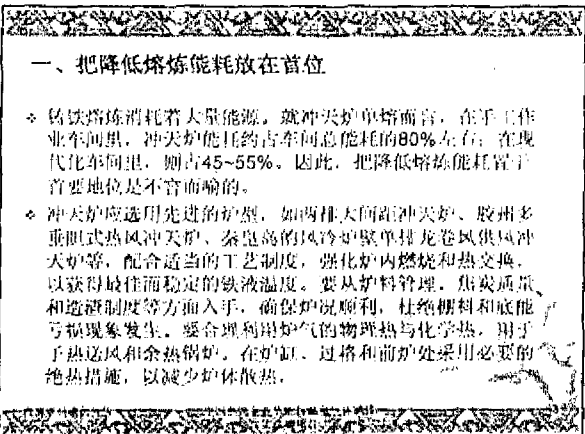 一、把降低熔炼能耗放在首位
铸铁熔炼消耗着大量能源。就冲天炉单熔而言，在手工作
业车间里，冲天炉能耗约占车间总能耗的80%左右；在现
代化车间里，则占45~55%。因此，把降低熔炼能耗置于
首要地位是不言而喻的。
冲天炉应选用先进的炉型，如两排大间距冲天炉、胶州多
重胆式热风冲天炉、秦皇岛的风冷炉壁单排龙卷风供风冲
天炉等，配合适当的工艺制度，强化炉内燃烧和热交换，
以获得最佳而稳定的铁液温度。要从炉料管理、焦炭质量
和造渣制度等方面入手，确保炉况顺利，杜绝棚料和底焦
亏损现象发生。要合理利用炉气的物理热与化学热，用于
予热送风和余热锅炉。在炉缸、过桥和前炉处采用必要的
绝热措施，以减少炉体散热。